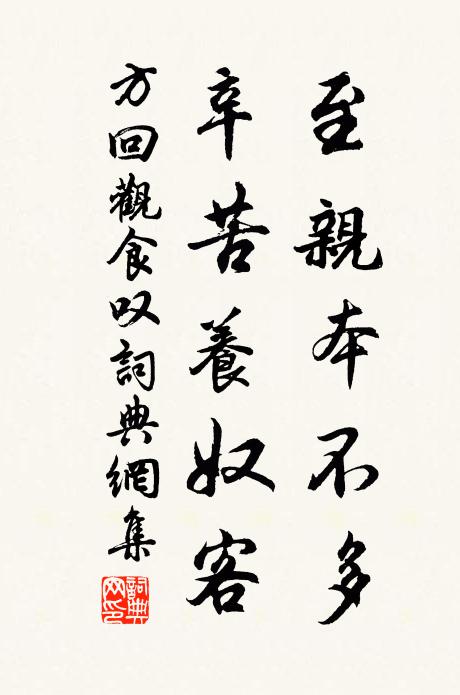 至親本不多
辛苦養奴客
方回觀食叹詞典網集
詞典網印